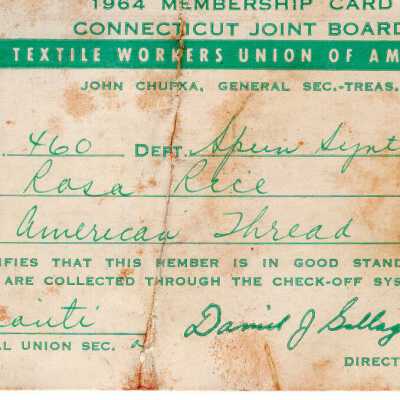 1964 MEMBERSHIP CARD
CONNECTICUT JOINT BOARD
TEXTILE WORKERS UNION OF AM
JOHN CHUPKA, GENERAL SEC.-TREAS.
460 DEPT. Spun Synt
Rosa Rice
American Thread
IFIES THAT THIS MEMBER IS IN GOOD STAND
ARE COLLECTED THROUGH THE CHECK-OFF SYS
Daniel J Gallag
L UNION SEC.
DIRECT